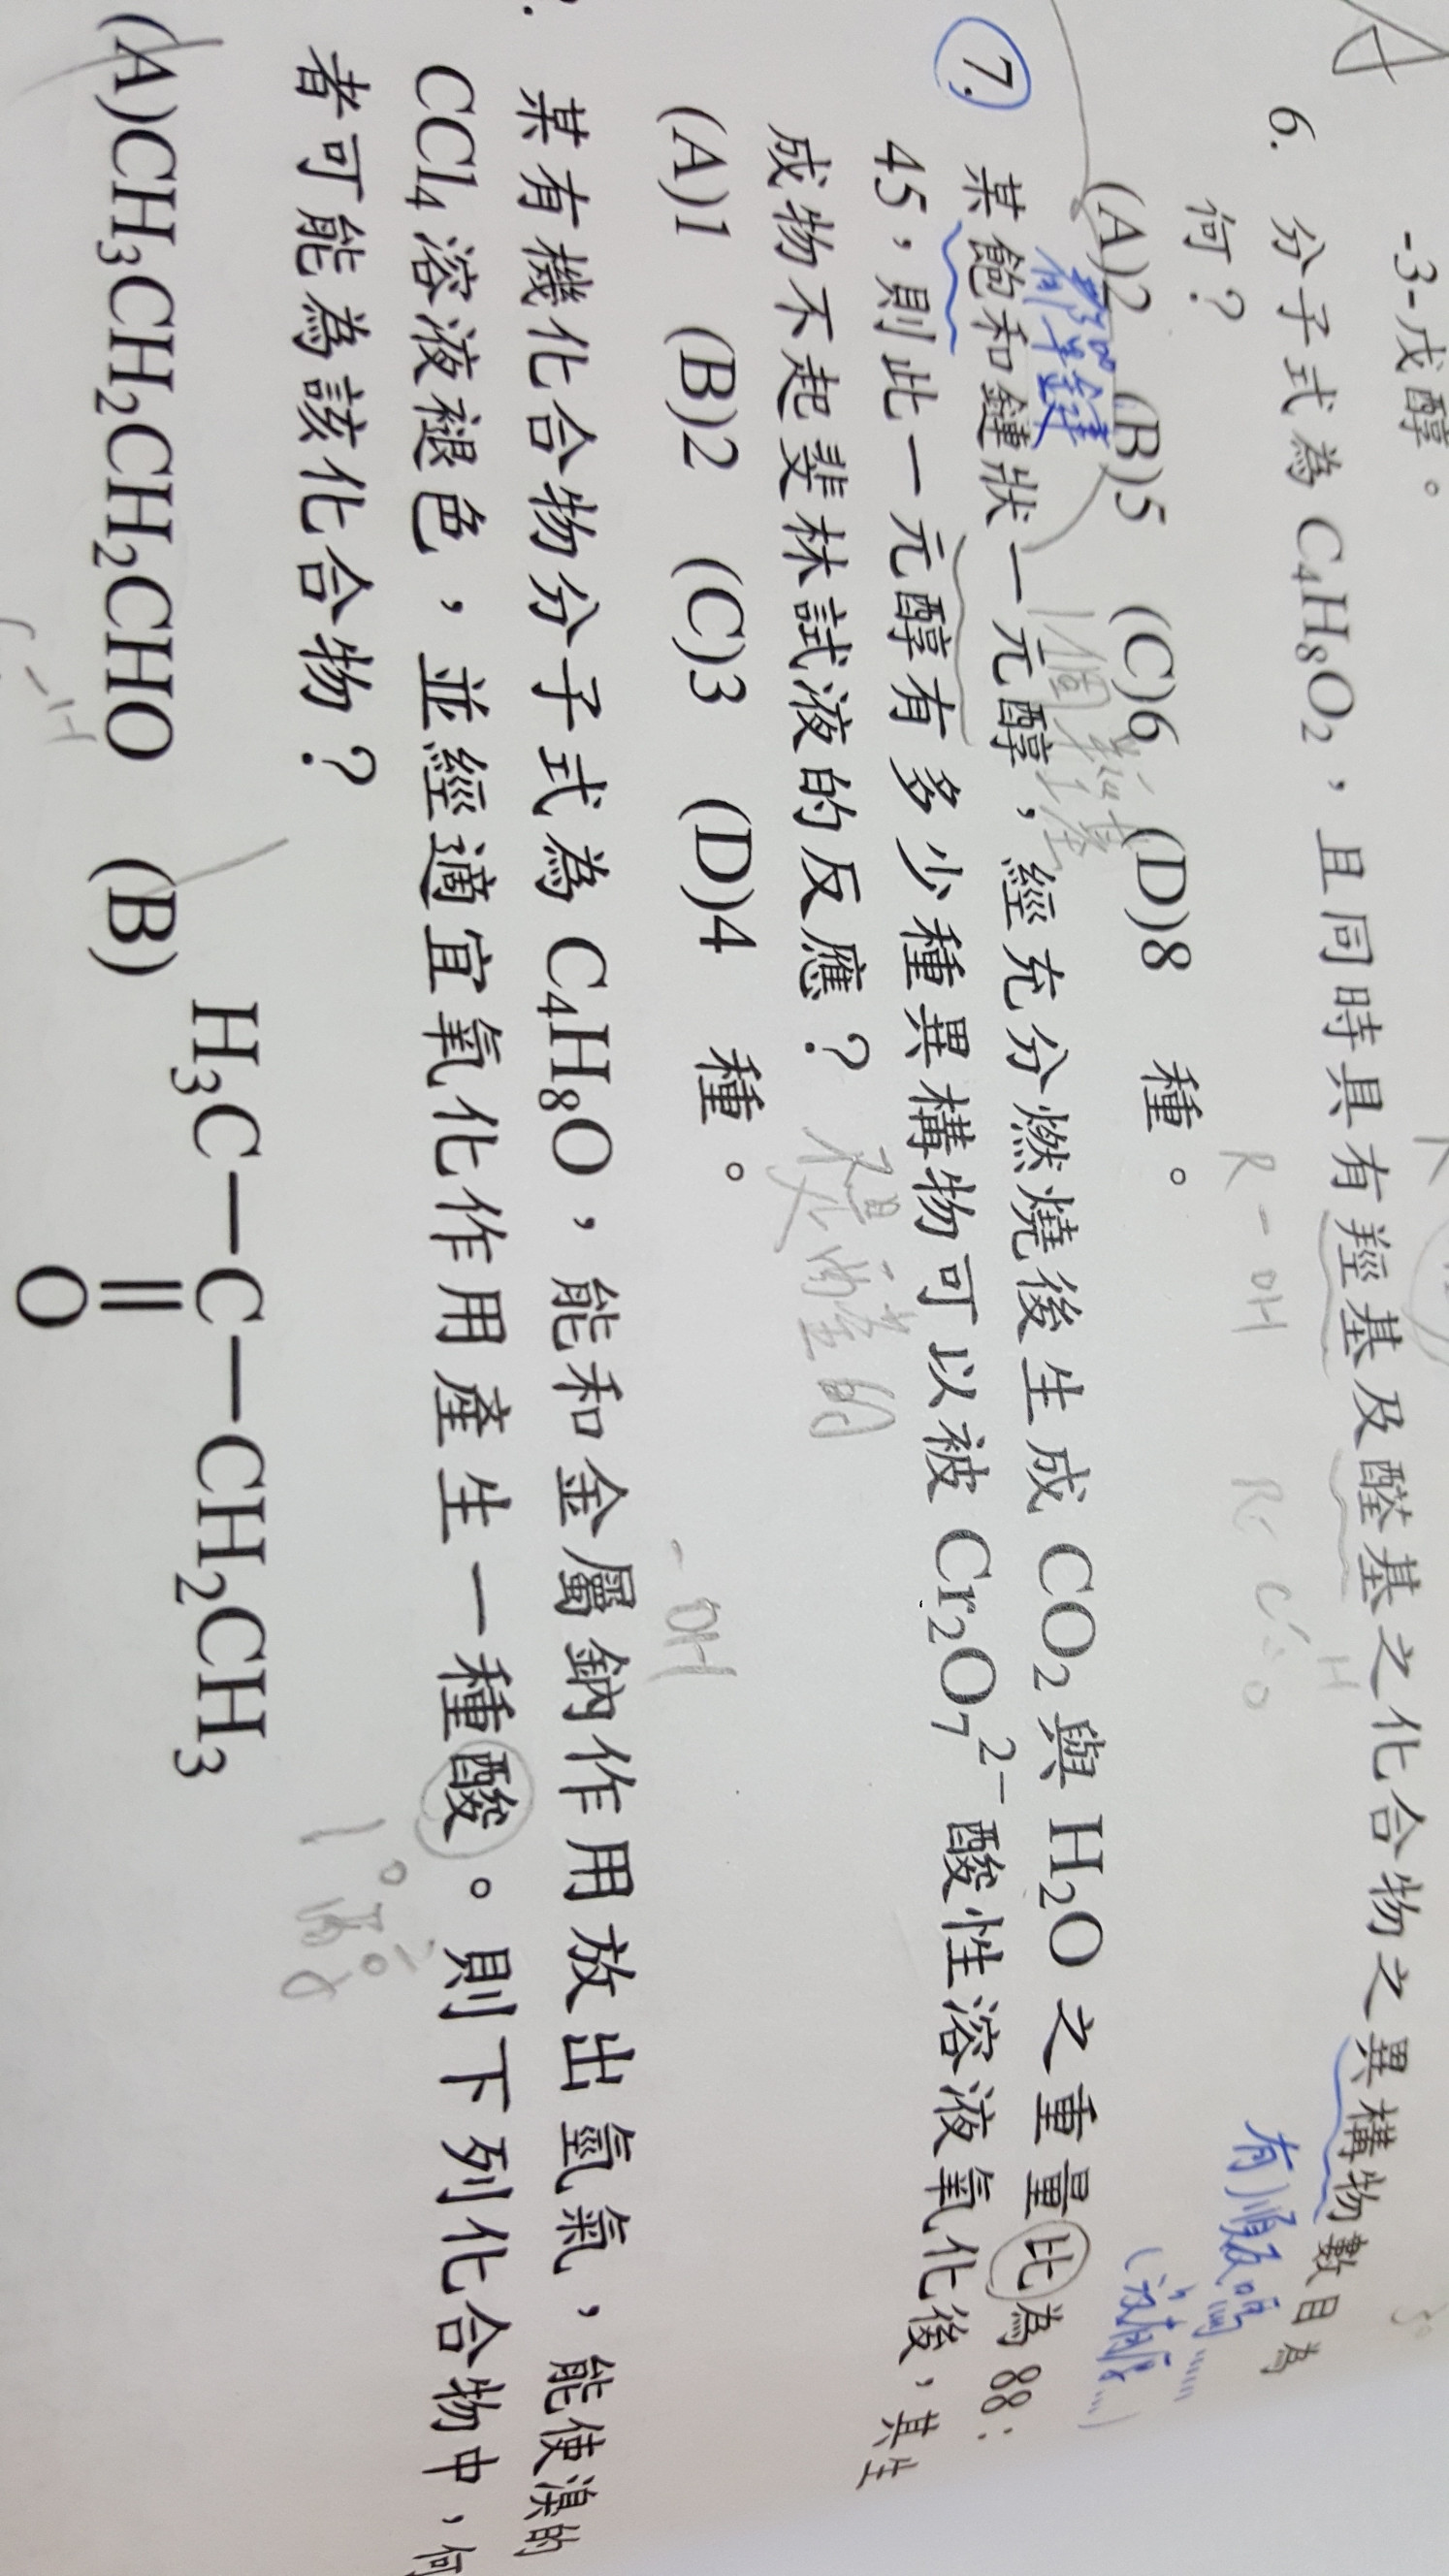 -3-戊醇。
6. 分子式為 C₄H₈O₂，且同時具有羥基及醛基之化合物之異構物數目為
何？
R-OH
有順反嗎
(A)2 (B)5 (C)6 (D)8 種。
(沒有...)
都單鍵 1個羥基
7. 某飽和鏈狀一元醇，經充分燃燒後生成 CO₂ 與 H₂O 之重量比為 88：
45，則此一元醇有多少種異構物可以被 Cr₂O₇²⁻ 酸性溶液氧化後，其生
成物不起斐林試液的反應？
(A)1 (B)2 (C)3 (D)4 種。
-OH
某有機化合物分子式為 C₄H₈O，能和金屬鈉作用放出氫氣，能使溴的
CCl₄ 溶液褪色，並經適宜氧化作用產生一種酸。則下列化合物中，何
者可能為該化合物？
1°
(A)CH₃CH₂CH₂CHO (B) H₃C－C－CH₂CH₃
O